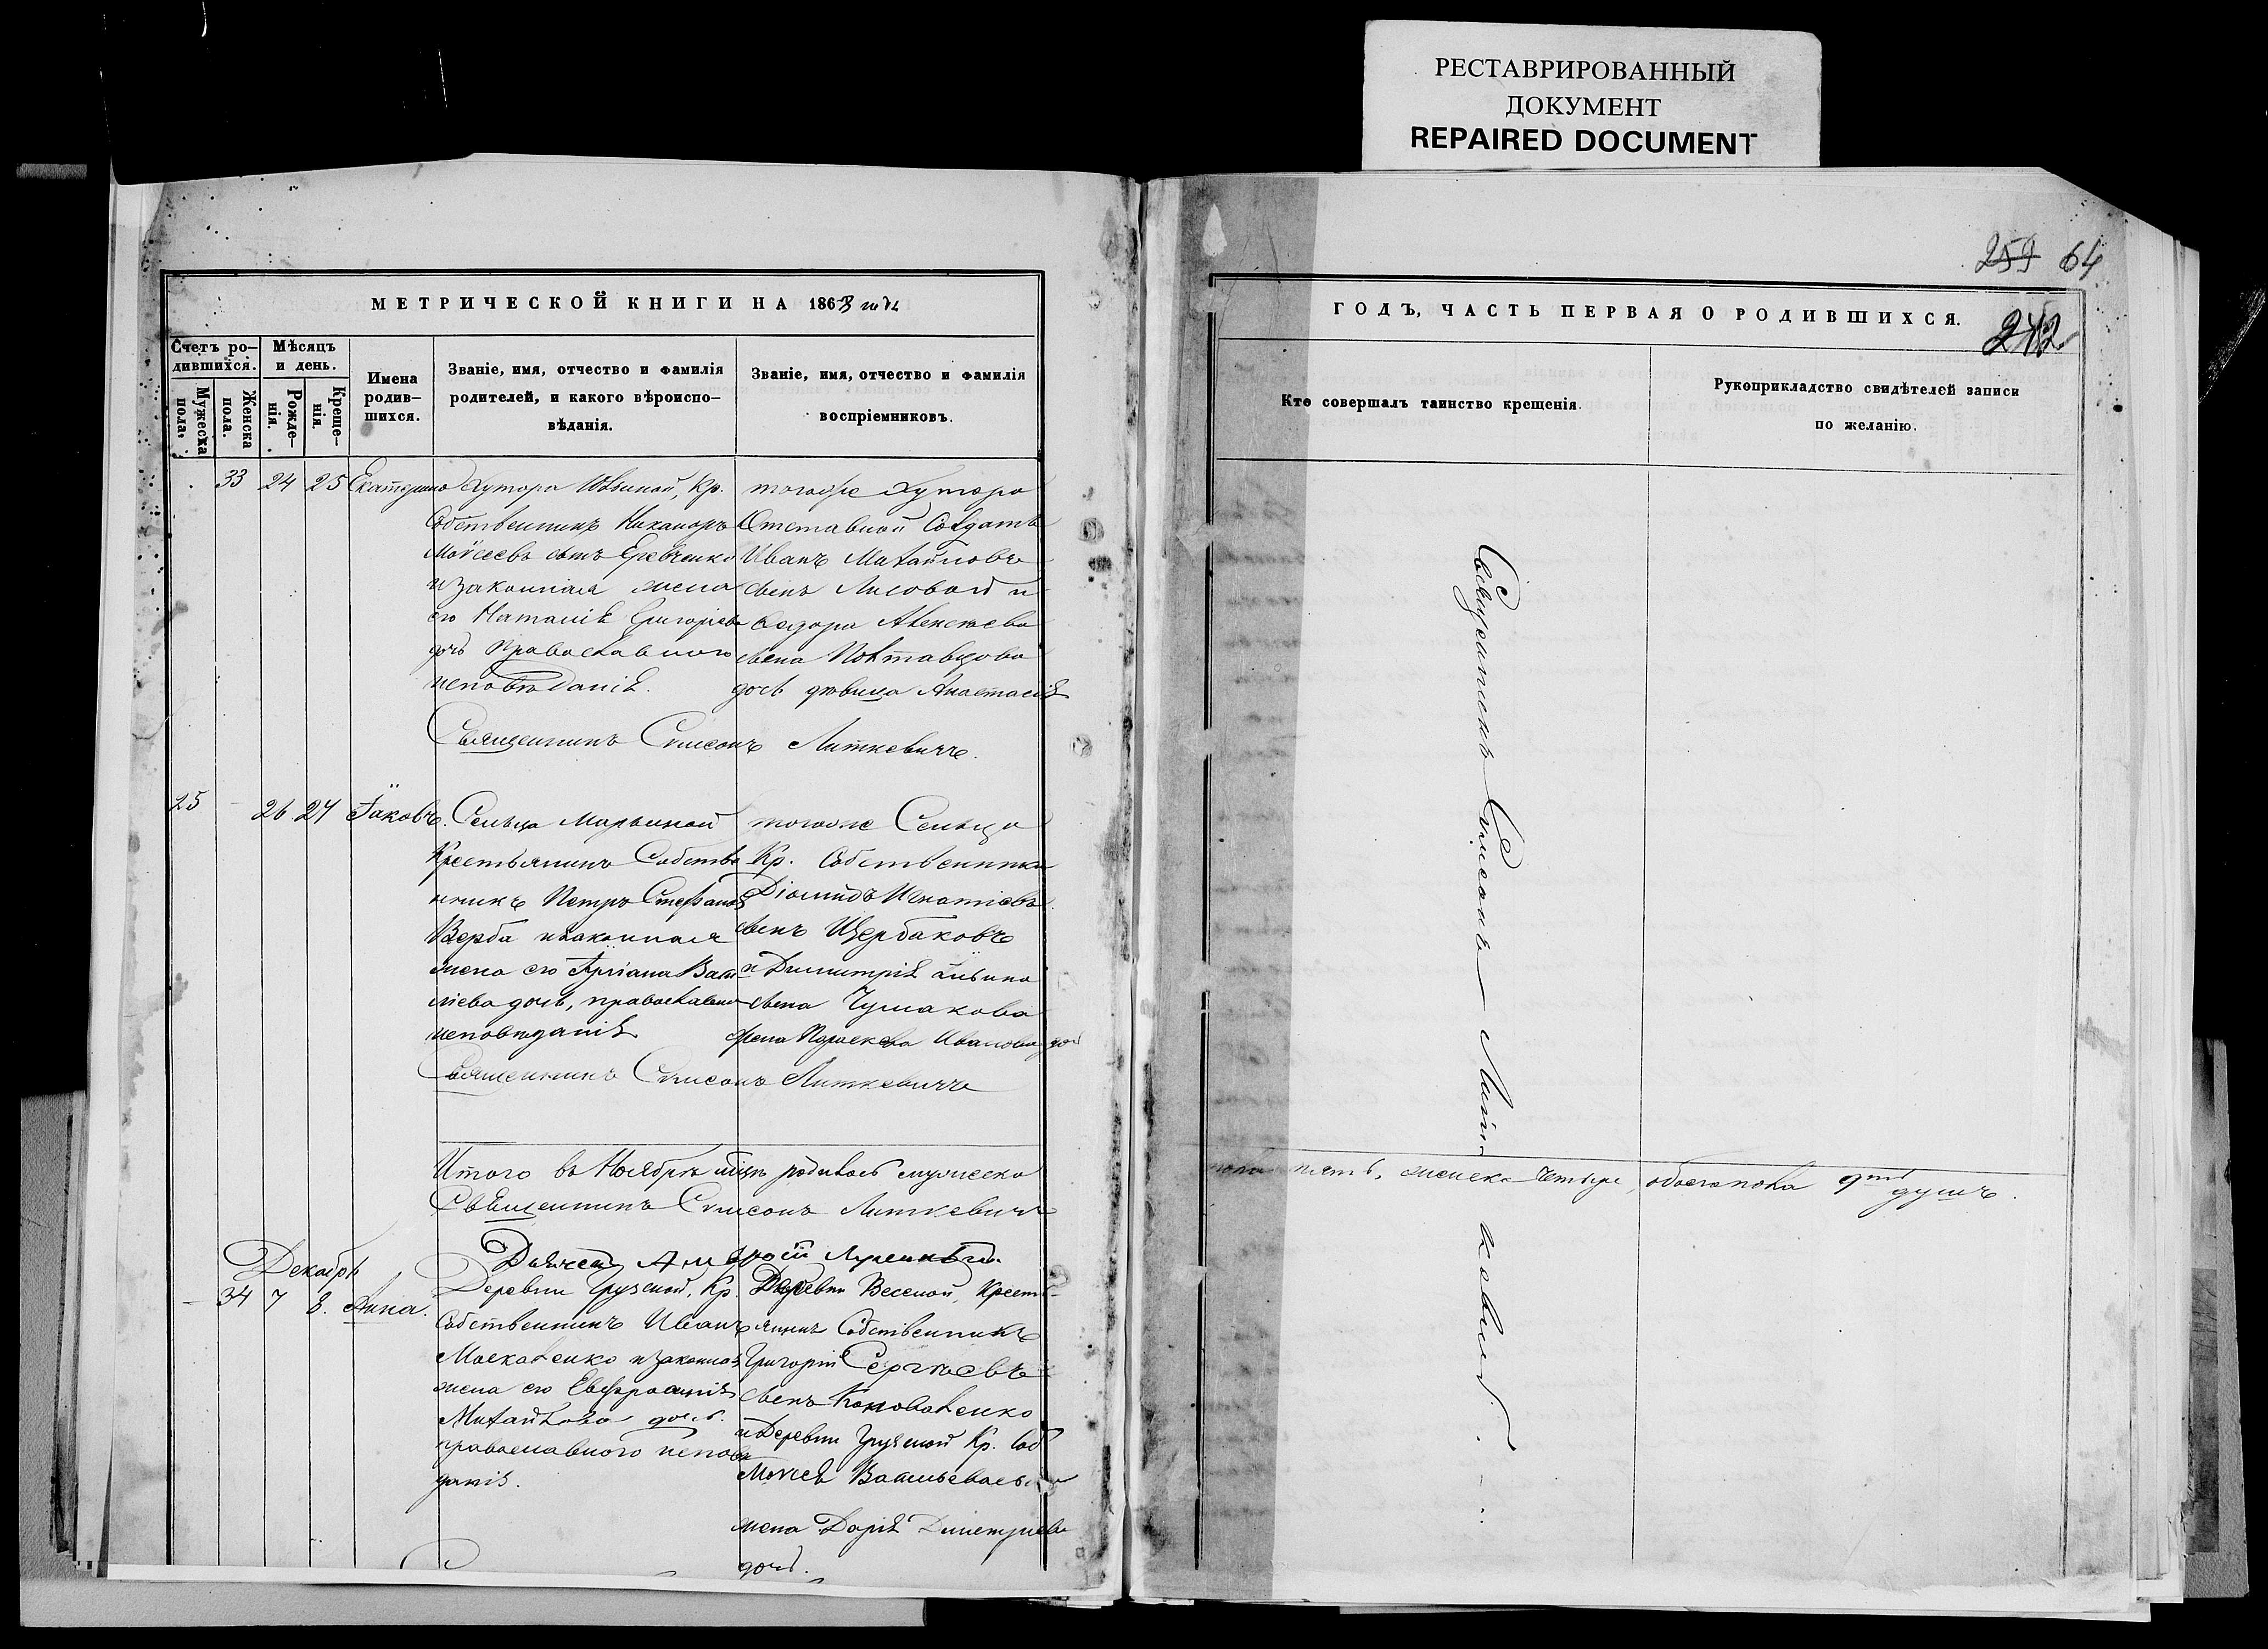 РЕСТАВРИРОВАННЫЙ
ДОКУМЕНТ
REPAIRED DOCUMENT
259 64
МЕТРИЧЕСКОЙ КНИГИ НА 1868 годъ
Счетъ ро-
дившихся.
Мужеска
пола.
Женска
пола.
Мѣсяцъ
и день.
Рожде-
нія.
Креще-
нія.
Имена
родив-
шихся.
Званіе, имя, отчество и фамилія
родителей, и какого вѣроиспо-
вѣданія.
Званіе, имя, отчество и фамилія
воспріемниковъ.
33 24 25 Екатерина
Хутора Кр.
Собственникъ Никаноръ
Моѵсеевъ сынъ
и законная жена
его Наталія Григорьева
дочь Православного
исповѣданія.
тогоже Хутора
Отставной Солдатъ
Иванъ Михайловъ
сынъ Лисовой и
Алексѣева
сына Полтавцова
дочь дѣвица Анастасія
Священникъ Симеонъ Литкевичъ.
25 - 26 27 Іаковъ.
Сельца Марьиной
Крестьянинъ Собстве
нникъ Петръ Стефановъ
Верба и законная
жена его Васи-
ліева дочь, православно
исповѣданія
тогоже Сельца
Кр. Собственники
Діомидъ Игнатіевъ
сынъ Щербаковъ
и Димитрія
сына Чумакова
жена Параскева Иванова дочь
Священникъ Симеонъ Литкевичъ
Итого въ Ноябрѣ мцѣ родилось мужеска
Священникъ Симеонъ Литкевичъ
Дьячекъ
Декабрь
- 34 7 8. Анна.
Деревни Грузской, Кр.
Собственникъ Иванъ
Москаленко и законная
жена его Евфросинія
Михайлова дочь.
православного исповѣ
данія.
Деревни Веселой, Кресть-
янинъ Собственникъ
Григорій Сергѣевъ
сынъ Коноваленко
и Деревни Грузской Кр. Соб
Моисея Васильева
жена Дарія Димитриева
дочь.
ГОДЪ, ЧАСТЬ ПЕРВАЯ О РОДИВШИХСЯ.
242
Кто совершалъ таинство крещенія.
Рукоприкладство свидѣтелей записи
по желанію.
Священникъ Симеонъ Литкевичъ.
пола пять, женска четыре, обоего пола 9ть душъ.